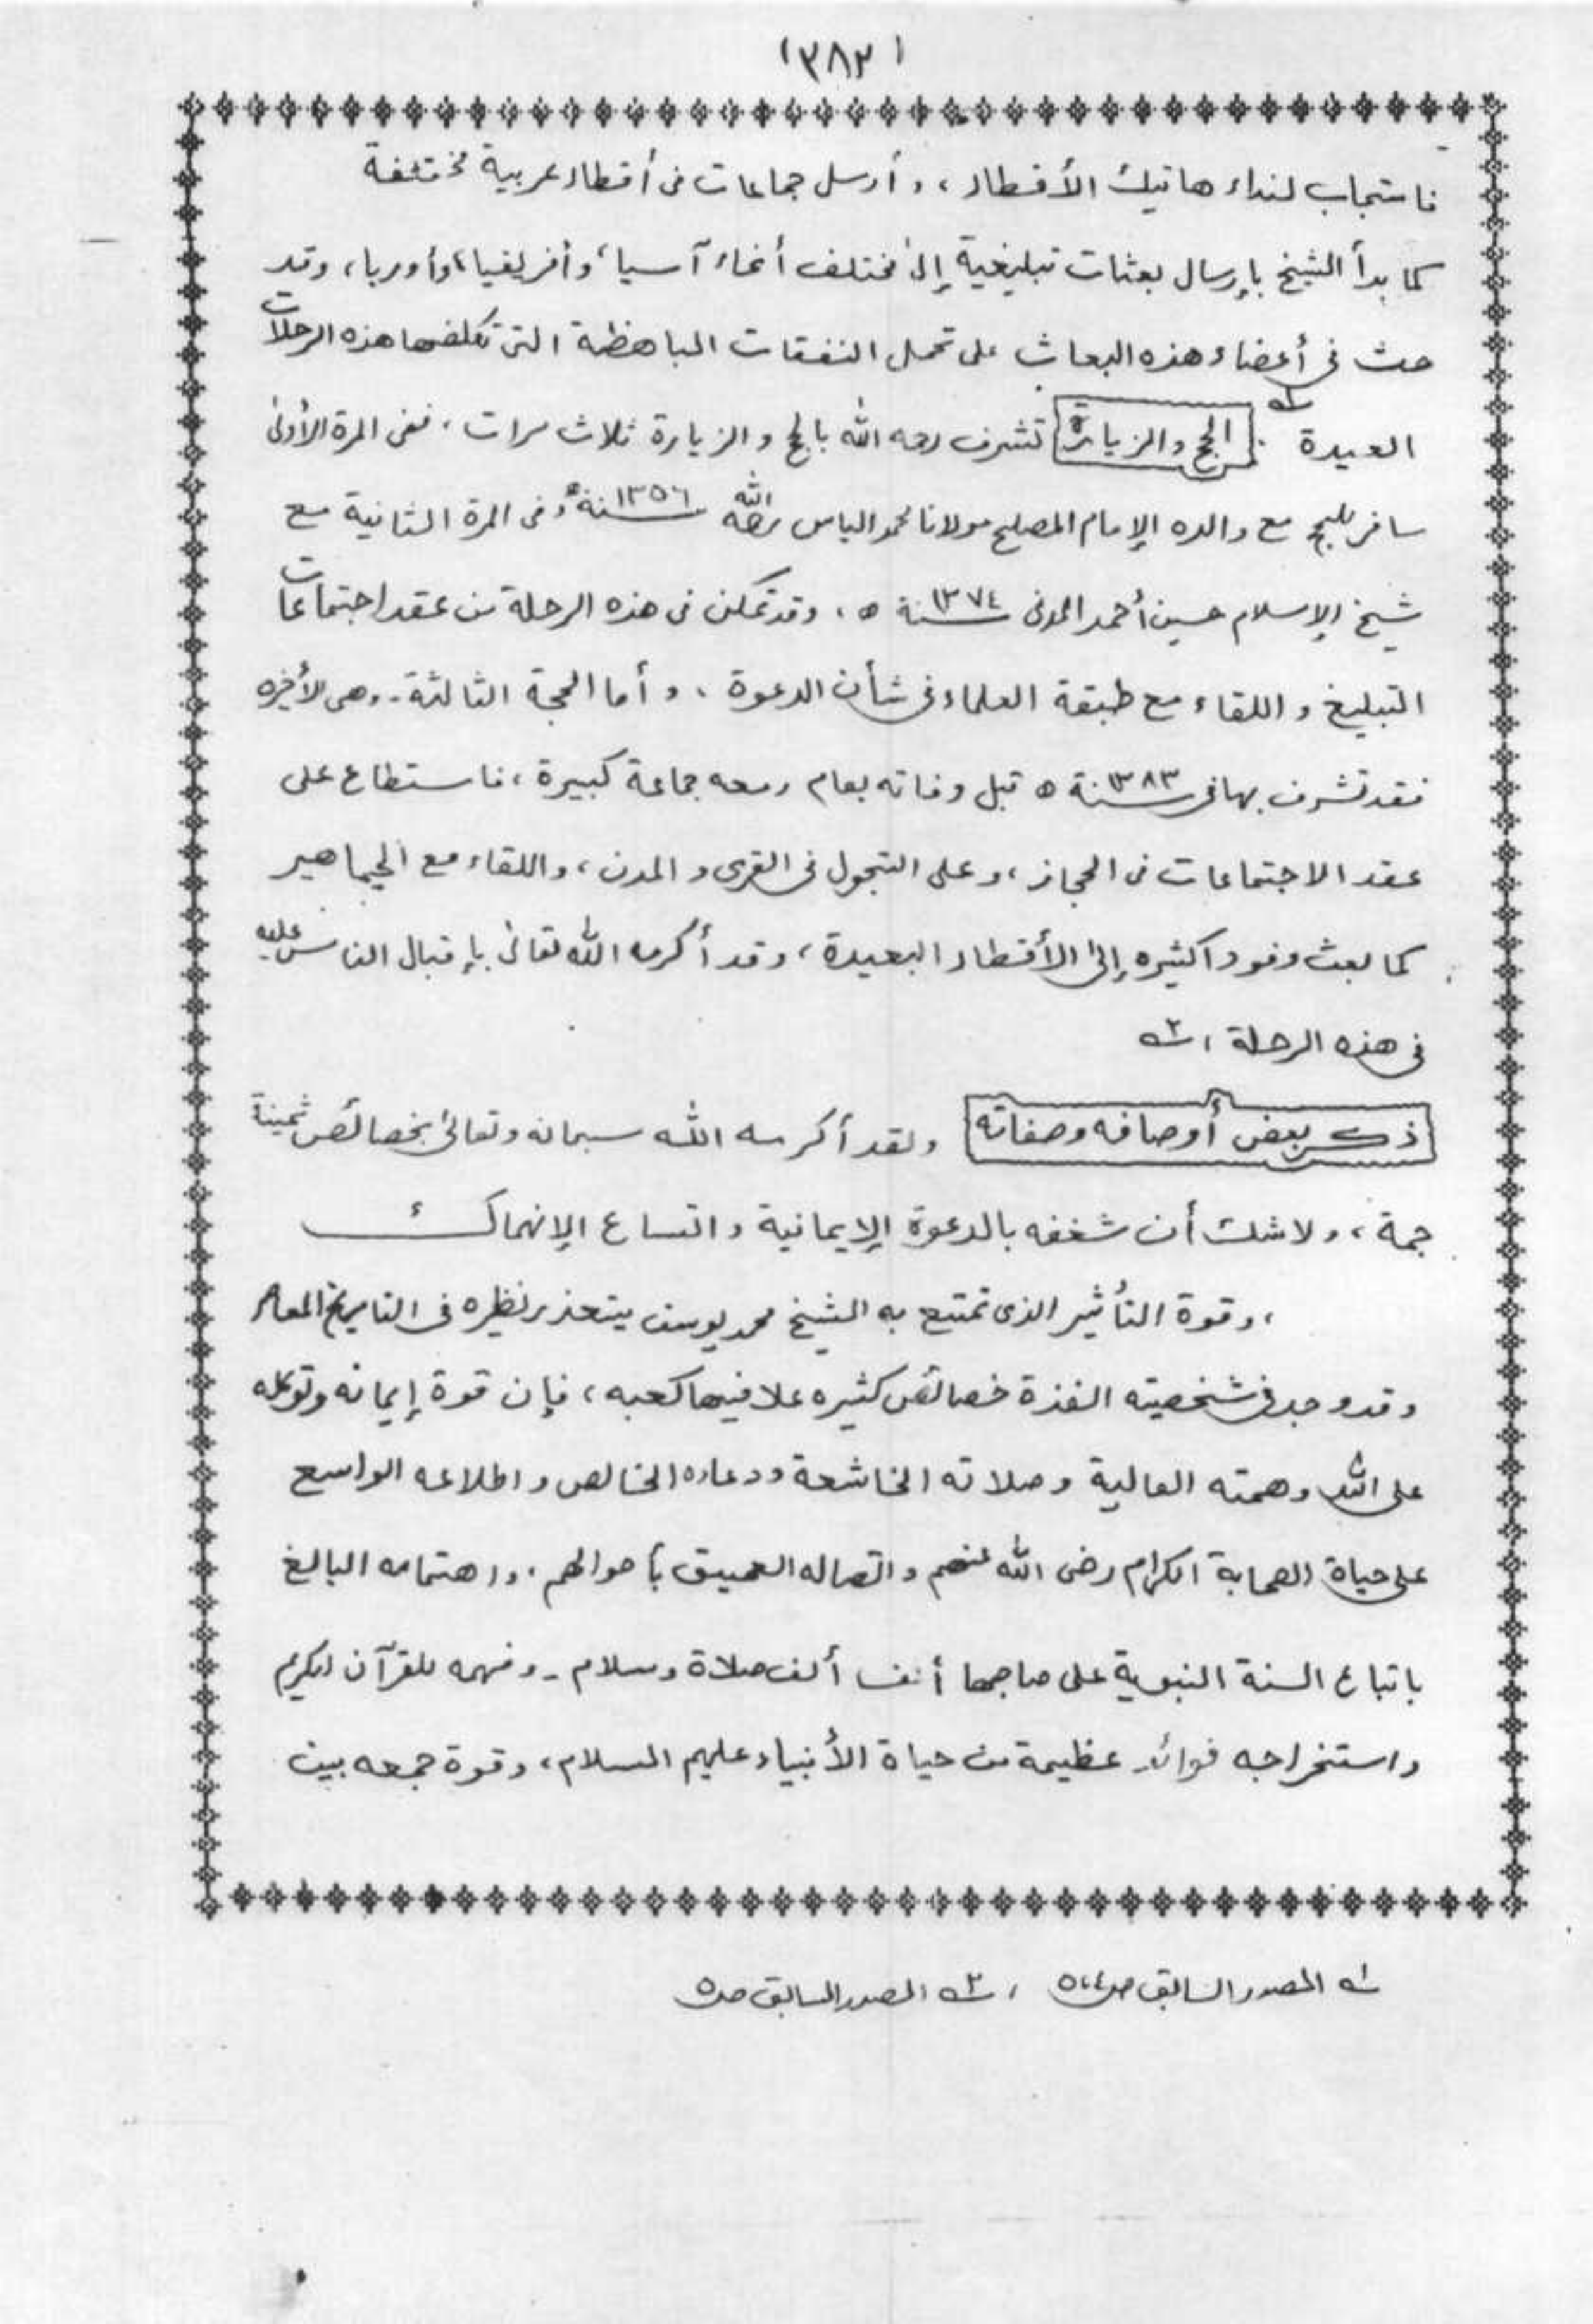 (٣٨٢)
فاستجاب لنداء هاتيك الأقطار ، وأرسل جماعات فى أقطار عربية مختلفة
كما بدأ الشيخ بإرسال بعثات تبليغية إلى مختلف أنحاء آسيا، وأفريقيا، وأوربا، وقد
حث فى أعضاء هذه البعاث على تحمل النفقات الباهظة التى تكلفها هذه الرحلات
العيدة ١ؔ . الحج والزيارة تشرف رحمه الله بالحج والزيارة ثلاث مرات ، ففى المرة الأولى
سافر للحج مع والده الإمام المصلح مولانا محمد الياس رحمه الله سنة ١٣٥٦ھ وفى المرة الثانية مع
شيخ الإسلام حسين أحمد المدنى سنة ١٣٧٤ ھ ، وقد تمكن فى هذه الرحلة من عقد اجتماعات
التبليغ واللقاء مع طبقة العلماء فى شأن الدعوة ، وأما الحجة الثالثة - وهى الأخيره
فقد تشرف بها فى سنة ١٣٨٣ ھ قبل وفاته بعام ومعه جماعة كبيرة ، فاستطاع على
عقد الاجتماعات فى الحجاز ، وعلى التجول فى القرى والمدن ، واللقاء مع الجماهير
كما بعث وفودا كثيره إلى الأقطار البعيدة ، وقد أكرمه الله تعالى بإقبال الناس عليه
فى هذه الرحلة ، ٢ؔ
ذكر بعض أوصافه وصفاته ولقد أكرمه الله سبحانه وتعالى بخصائص ثمينة
جمة ، ولاشك أن شغفه بالدعوة الإيمانية واتساع الإنهماك
، وقوة التأثير الذى تمتع به الشيخ محمد يوسف يتعذر نظيره فى التاريخ المعاصر
وقد وجد فى شخصيته الفذة خصائص كثيره علا فيها كعبه ، فإن قوة إيمانه وتوكله
على الله وهمته العالية وصلاته الخاشعة ودعاءه الخالص واطلاعه الواسع
على حياة الصحابة الكرام رضى الله عنهم واتصاله العميق بأحوالهم . واهتمامه البالغ
باتباع السنة النبوية على صاحبها ألف ألف صلاة وسلام - وفهمه للقرآن الكريم
واستخراجه فوائد عظيمة من حياة الأنبياء عليهم السلام ، وقوة جمعه بين
١ؔ المصدر السابق صـ ، ٢ؔ المصدر السابق صـ٥